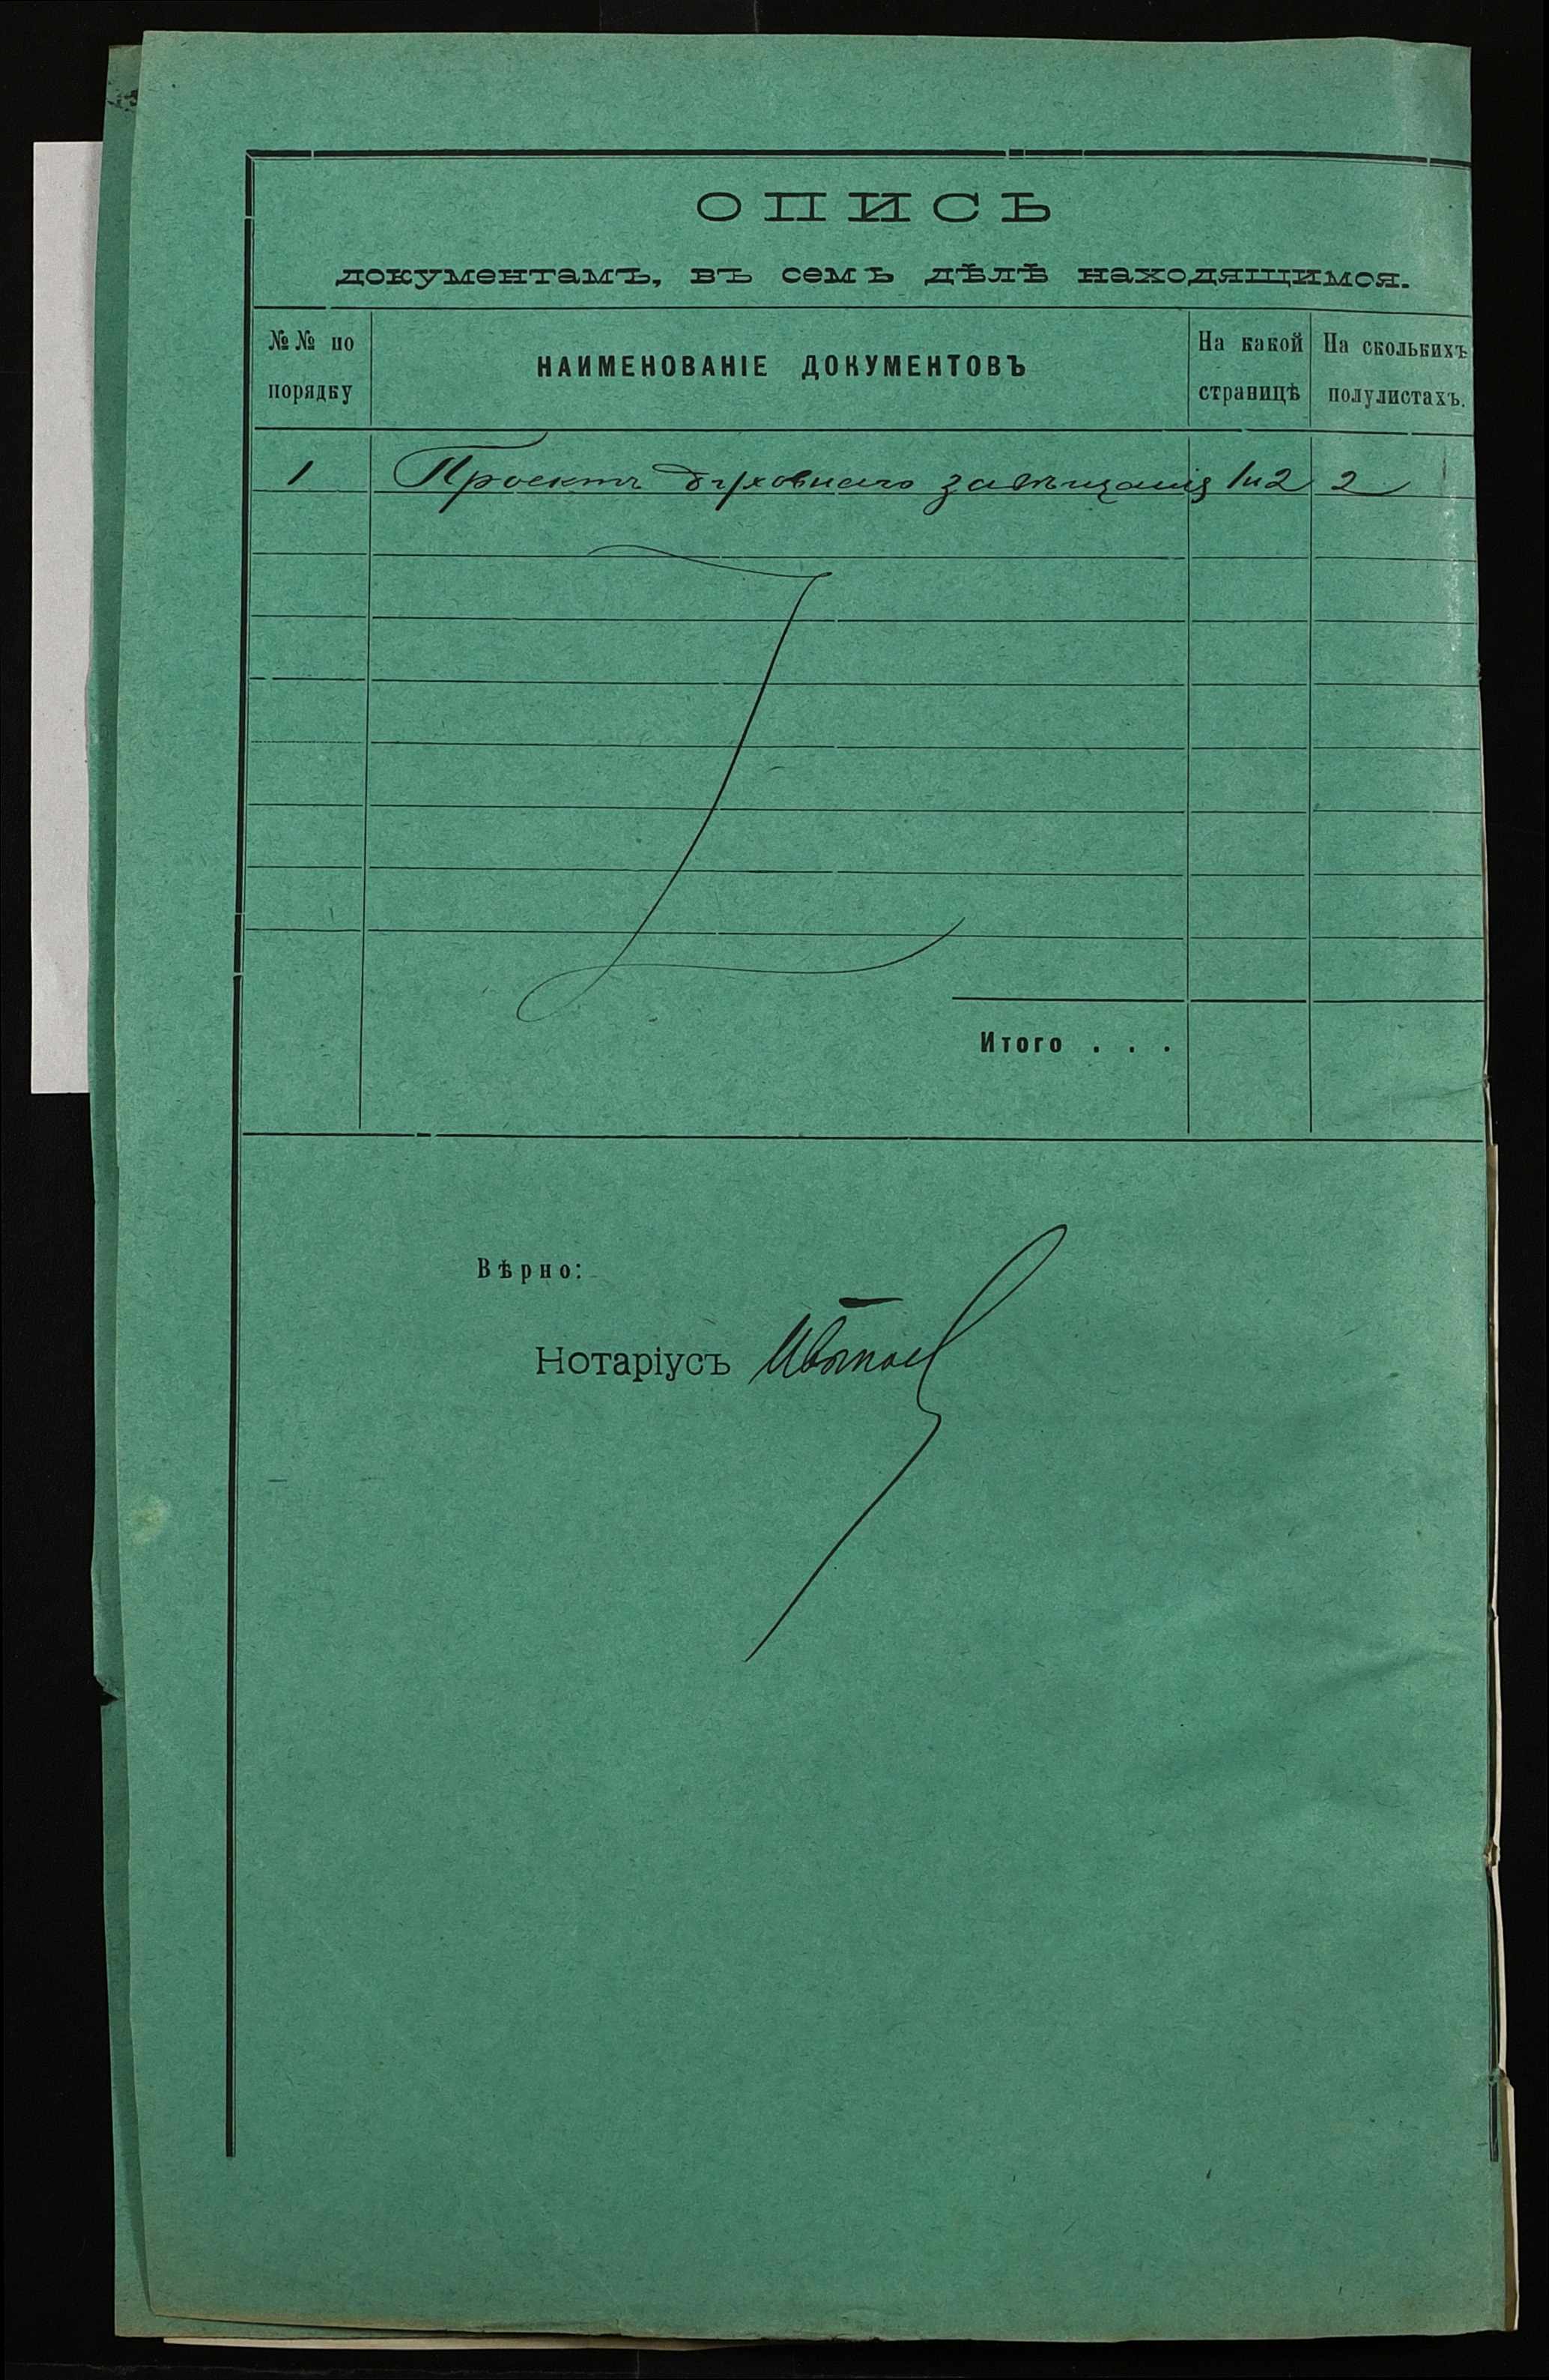 ОПИСЬ
документамъ, въ семъ дѣлѣ находящимся.
№№ по порядку
НАИМЕНОВАНІЕ ДОКУМЕНТОВЪ
На какой страницѣ
На сколькихъ полулистахъ.
1 Проектъ духовнаго завѣщанія 1 и 2 2
Итого . . .
Вѣрно:
Нотаріусъ